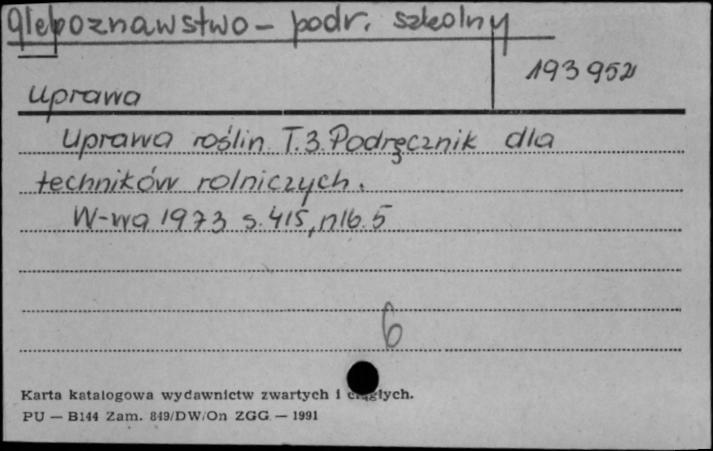 gleboznawstwo - podr. szkolny
193 952
uprawa
Uprawa roślin. T.3. Podręcznik dla
techników rolniczych.
W-wa 1973 s. 415, nlb. 5
6
Karta katalogowa wydawnictw zwartych i ciągłych.
PU — B144 Zam. 849/DW/On ZGG — 1991